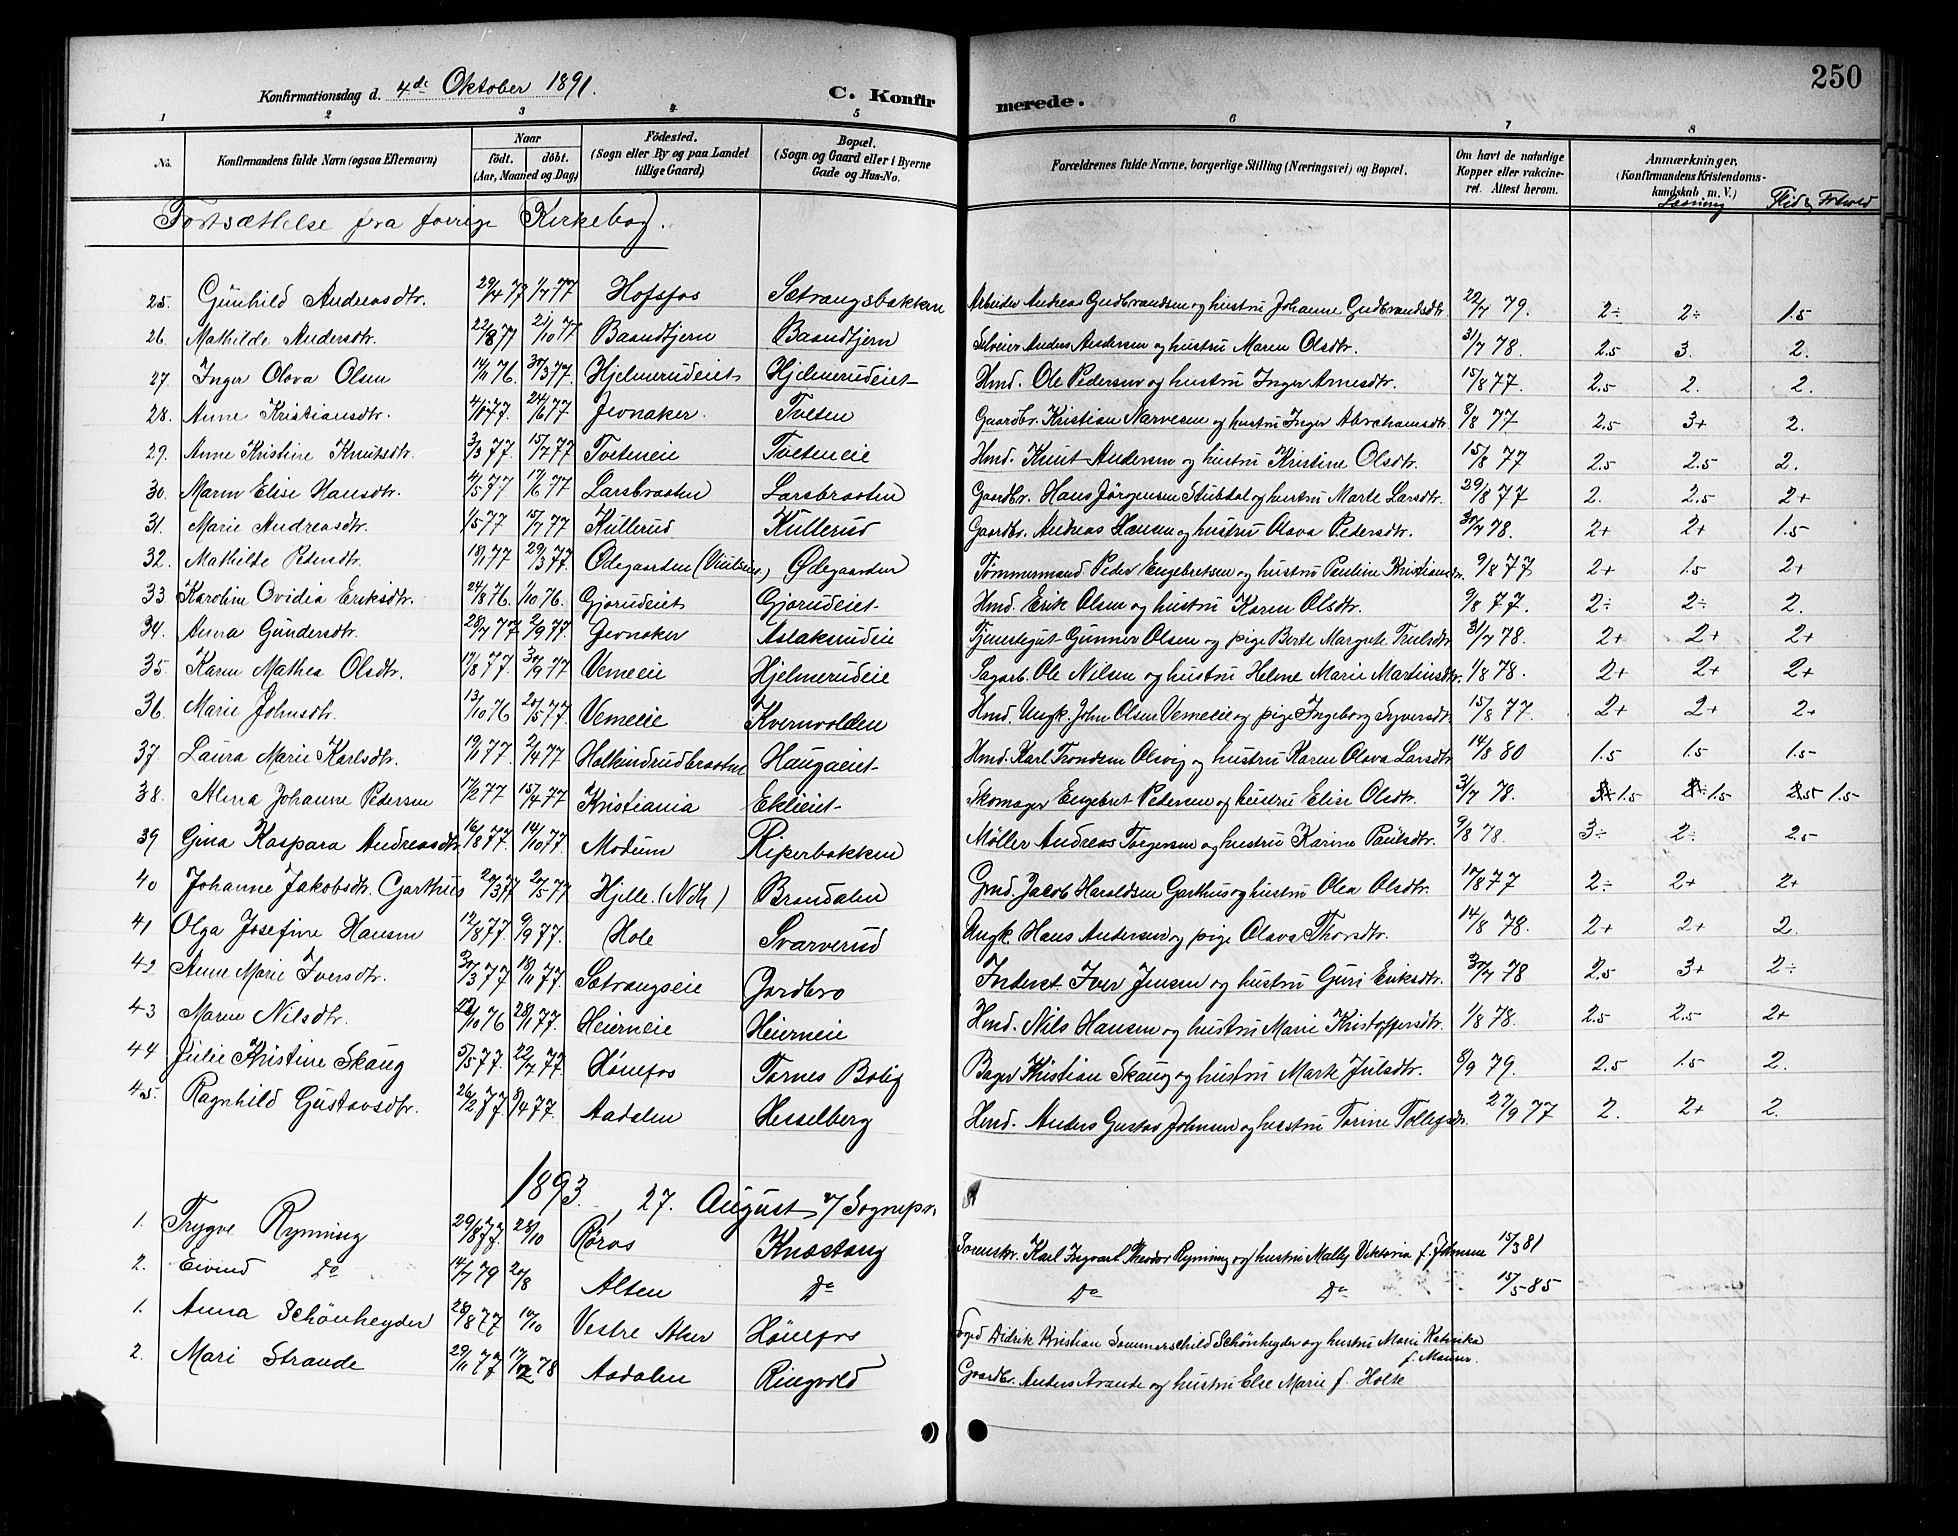 Konfirmationsdag d. 4de Oktober 1891. C. Konfirmerede. 250
1 2 3 4 5 6 7 8
No. Konfirmandens fulde Navn (ogsaa Efternavn) Naar födt. döbt. (Aar, Maaned og Dag) Födested. (Sogn eller By og paa Landet tillige Gaard) Bopæl. (Sogn og Gaard eller i Byerne Gade og Hus-No. Forældrenes fulde Navne, borgerlige Stilling (Næringsvei) og Bopæl. Om havt de naturlige Kopper eller vakcineret. Attest herom. Anmærkninger, (Konfirmandens Kristendomskundskab m. V.) Læsning Flid & Forhold
Fortsættelse fra forrige Kirkebog.
25. Gunhild Andreasdtr. 29/4 77 1/7 77 Hofsfos Sætrangsbakken Arbeider Andreas Gudbrandsen og hustru Johanne Gudbrandsdtr. 22/7 79. 2÷ 2÷ 1.5
26. Mathilde Andersdtr. 22/8 77 21/10 77 Baandtjern Baandtjern Selveier Anders Andersen og hustru Maren Olsdtr. 31/7 78. 2.5 3. 2.
27. Inger Olava Olsen 14/11 76. 30/3 77. Hjelmerudeiet Hjelmerudeiet Hmd. Ole Pedersen og hustru Inger Arnesdtr. 15/8 77. 2.5 2. 2.
28. Anne Kristiansdtr. 4/4 77. 24/6 77 Jevnaker. Tveten Gaardbr. Kristian Narvesen og hustru Inger Abrahamsdtr. 8/8 77 2.5 3+ 2.
29. Anne Kristine Knutsdtr. 3/3 77. 15/7 77 Tveteneie Tveteneie Hmd. Knut Andersen og hustru Kristine Olsdtr. 15/8 77 2.5 2.5 2.
30. Maren Elise Hansdtr. 4/5 77 17/6 77 Larsbraaten Larsbraaten Gaardbr. Hans Jörgensen Stubdal og hustru Marte Larsdtr. 29/8 77 2. 2.5 2+
31. Marie Andreasdtr. 1/5 77 15/7 77 Kullerud Kullerud Gaardbr. Andreas Hansen og hustru Olava Pedersdtr. 30/7 78. 2+ 2+ 1.5
32. Mathilde Pedersdtr. 18/1 77 29/3 77. Ødegaarden Ødegaarden Tömmermand Peder Engebretsen og hustru Pauline Kristiansdtr. 9/8 77 2+ 1.5 2+
33 Karoline Ovidia Eriksdtr. 24/8 76. 1/10 76. Gjørudeiet Gjørudeiet Hmd. Erik Olsen og hustru Karen Olsdtr. 9/8 77. 2÷ 2÷ 2.
34. Anna Gundersdtr. 28/7 77 2/9 77. Jevnaker Aslaksrudeie Tjenestegut Gunner Olsen og pige Berte Margrete Trulsdtr. 31/7 78. 2+ 2+ 2+
35. Karen Mathea Olsdtr. 17/8 77. 30/9 77 Vemeeie Hjelmerudeie Sagarb. Ole Nilsen og hustru Helene Marie Martinsdtr. 1/8 78. 2+ 2+ 2+
36. Marie Johnsdtr. 13/10 76 20/5 77 Vemeeie Kvernvolden Hmd. Ungk. John Olsen Vemeeie og pige Ingeborg Syversdtr. 15/8 77. 2+ 2+ 2+
37. Laura Marie Karlsdtr. 19/1 77. 2/4 77 Halkindrudbraaten Haugaeiet Hmd. Karl Trondsen Olsvig og hustru Karen Olava Larsdtr. 14/8 80 1.5 1.5 1.5
38. Alma Johanne Pedersen 17/2 77 15/4 77 Kristiania Eklieiet Skomager Engebret Pedersen og hustru Elise Olsdtr. 31/7 78. 1.5 1.5 1.5
39 Gina Kaspara Andreasdtr. 16/8 77. 14/10 77. Modum Riperbakken Møller Andreas Torgersen og hustru Karine Paulsdtr. 9/8 78. 3÷ 2÷ 2.5
40 Johanne Jakobsdtr. Garthus 20/3 77 27/5 77 Hjelle (Ndh) Brendalen Gmd. Jacob Haraldsen Garthus og hustru Olea Olsdtr. 17/8 77 2÷ 2+ 2+
41 Olga Josefine Hansen 12/8 77. 9/9 77. Hole Svarverud Ungk. Hans Andersen og pige Olava Thorsdtr. 14/8 78. 2+ 2+ 2.
42 Anne Marie Iversdtr. 30/3 77 18/11 77. Sætrangseie Gardbro Inderst Iver Jensen og hustru Guri Eriksdtr. 30/7 78 2.5 3+ 2÷
43 Maren Nilsdtr. 22/10 76 28/1 77. Heierneie Heierneie Hmd. Nils Hansen og hustru Marie Kristoffersdtr. 1/8 78. 2.5 2.5 2+
44 Julie Kristine Skaug 5/5 77. 22/7 77 Hönefos Tornes Bolig Bager Kristian Skaug og hustru Marte Julsdtr. 8/9 79. 2.5 1.5 2.
45. Ragnhild Gustavsdtr. 26/2 77. 8/4 77. Aadalen Hesselberg Hmd. Anders Gustav Johnsen og hustru Torine Tollefsdtr. 27/9 77 2. 2+ 2.
1893. 27. August v/ Sognepr.
1. Trygve Rynning 29/8 77 28/10 Røros Knæstang Sorenskr. Karl Ingvart Theodor Rynning og hustru Mally Viktoria f. Johnsen 15/3 81
2. Eivind Do 14/7 79 20/8 Alten Do Do Do 15/5-85
1. Anna Schönheyder 28/8 77 10/10 Vestre Aker Hönefos Sogpr Didrik Kristian Sommerschild Schönheyder og hustru Marie Katinka f. Mauser.
2. Mari Strande 29/11 77 17/2 78 Aadalen Ringvold Gaardbr. Anders Strande og hustru Else Marie f. Holte